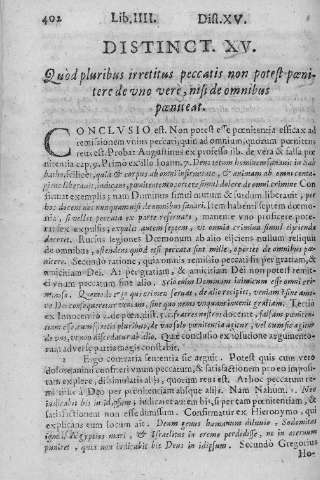 402 Lib. IIII. Dist. XV.
DISTINCT. XV.
Quòd pluribus irretitus peccatis non potest pœni-
tere de vno vere, nisi de omnibus
pœniteat.
CONCLVSIO est. Non potest esse pœnitentia efficax ad
remissionem vnius peccati, quin ad omnium, quorum pœnitens
reus est. Probat Augustinus ex professo lib. de vera & falsa pœ-
nitentia cap. 9. Primo ex illo Ioann. 7. totum hominem in Sab-
batho, scilicet, quia & corpus ab omni infirmitate, & animam ab omni conta-
gione liberauit, indicans, pœnitentem oportere simul dolere de omni crimine Con
firmat exemplis; nam Dominus simul mutum & surdum liberauit, per
hoc docens nos nunquam nisi de omnibus sanari. Item habens septem dæmo-
nia, si vellet peccata ex parte reseruata, manente vno proficere, pote-
rat sex expulsis; expulit autem septem, vt omnia crimina simul eijcienda
doceret. Rursus legiones Dæmonum ab alio eijciens nullum reliquit
de omnibus, ostendens quòd etsi peccata sint mille, oportet de omnibus pœni-
tere. Secundò ratione; quia omnis remissio peccati fit per gratiam, &
amicitiam Dei. At per gratiam, & amicitiam Dei non potest remit-
ti vnum peccatum sine alio. Scio enim Dominum inimicum esse omni cri-
minoso. Tertiò
ex Innocentio 2. de pœn. dist. 5. c. fratres nostros docente, falsam pœniten-
tiam esse, cum spretis pluribus, de vno solo pœnitentia agitur, vel cum sic agitur
de vno, vt non discedatur ab alio. Quæ conclusio ex solutione argumento-
rum aduersæ partis magis constabit.
2 Ergo contraria sententia sic arguit. Potest quis cum vero
dolore animi confiteri vnum peccatum, & satisfactionem pro eo imposi-
tam explere, dissimulatis alijs, quorum reus est. At hoc peccatum re-
mittitur à Deo per pœnitentiam absque alio. Nam Nahum. Non
iudicabit bis in idipsum; iudicaret autem bis, si per tam pœnitentiam, &
satisfactionem non esset dimissum. Confirmatur ex Hieronymo, qui
explicans eum locum ait. Deum genus humanum diluuio, Sodomitas
igne, Ægyptios mari, & Israelitas in eremo perdidisse, ne in æternum
puniret, quia non iudicabit bis Deus in idipsum. Secundò Gregorius
Ho-